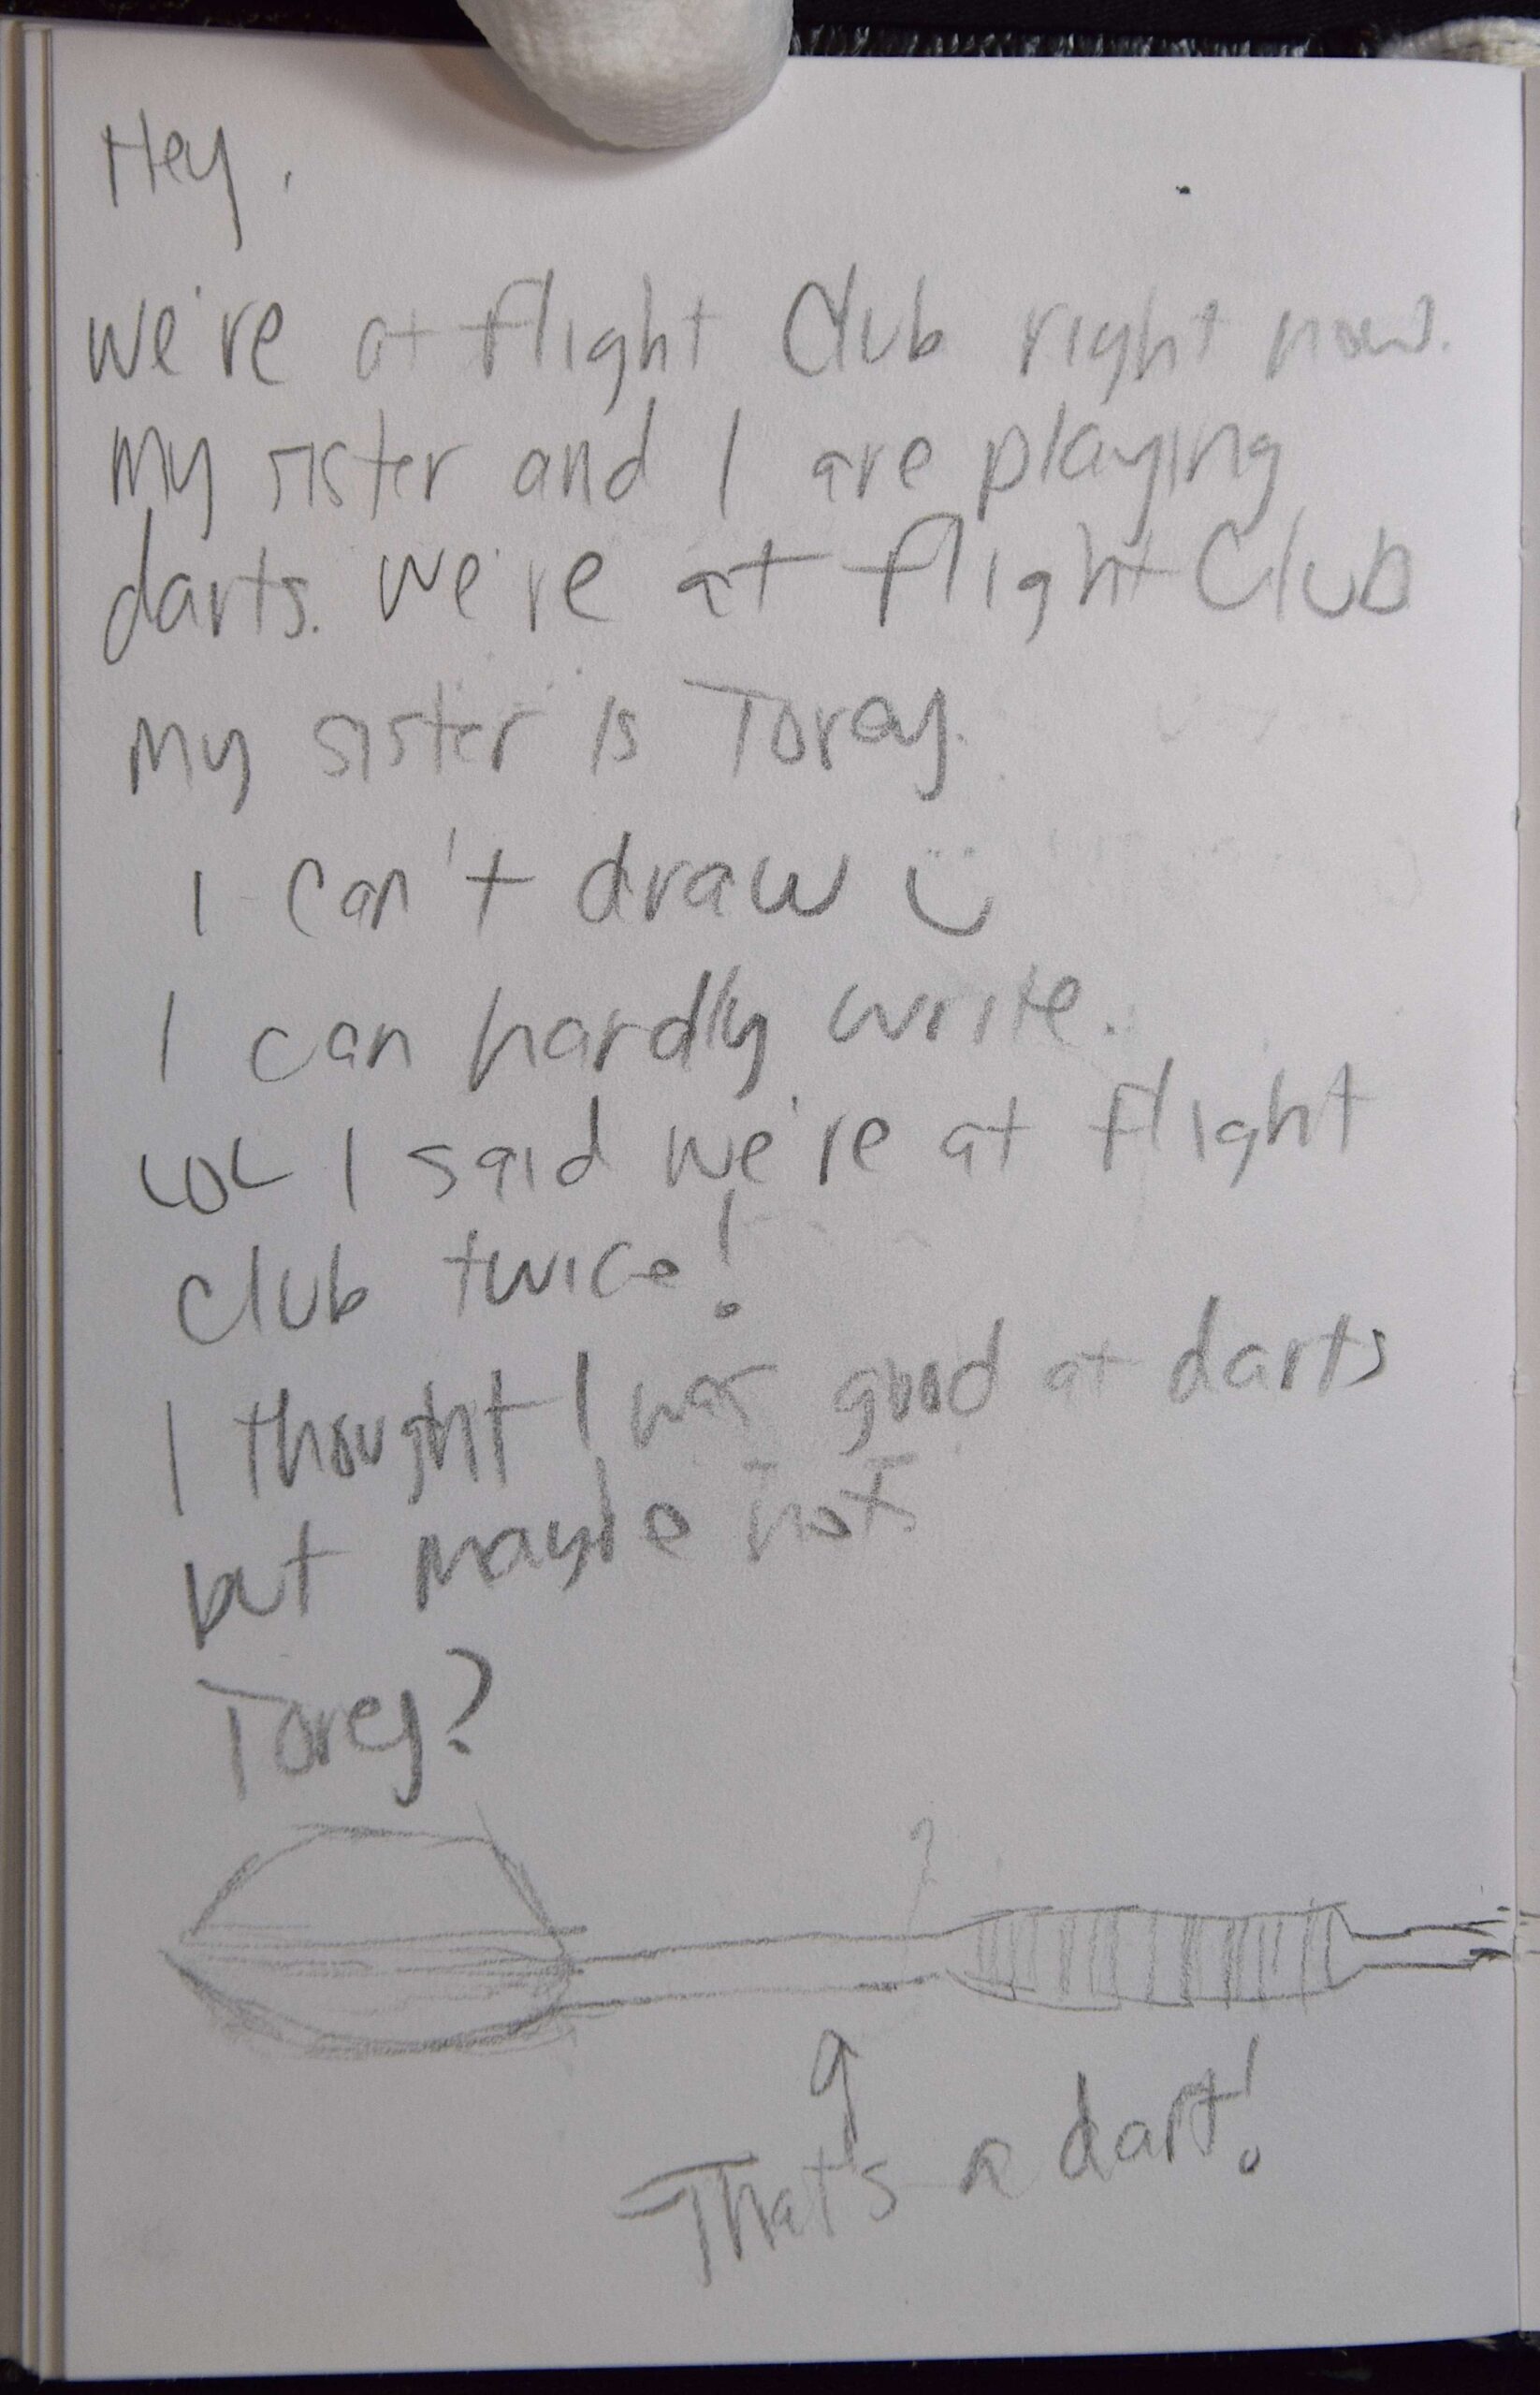 Hey.
We're at flight Club right now.
My sister and I are playing
darts. We're at flight Club
My sister is Torey.
I can't draw :)
I can hardly write.
LOL I said we're at flight
Club twice!
I thought I was good at darts
but maybe not.
Torey?
?
That's a dart!